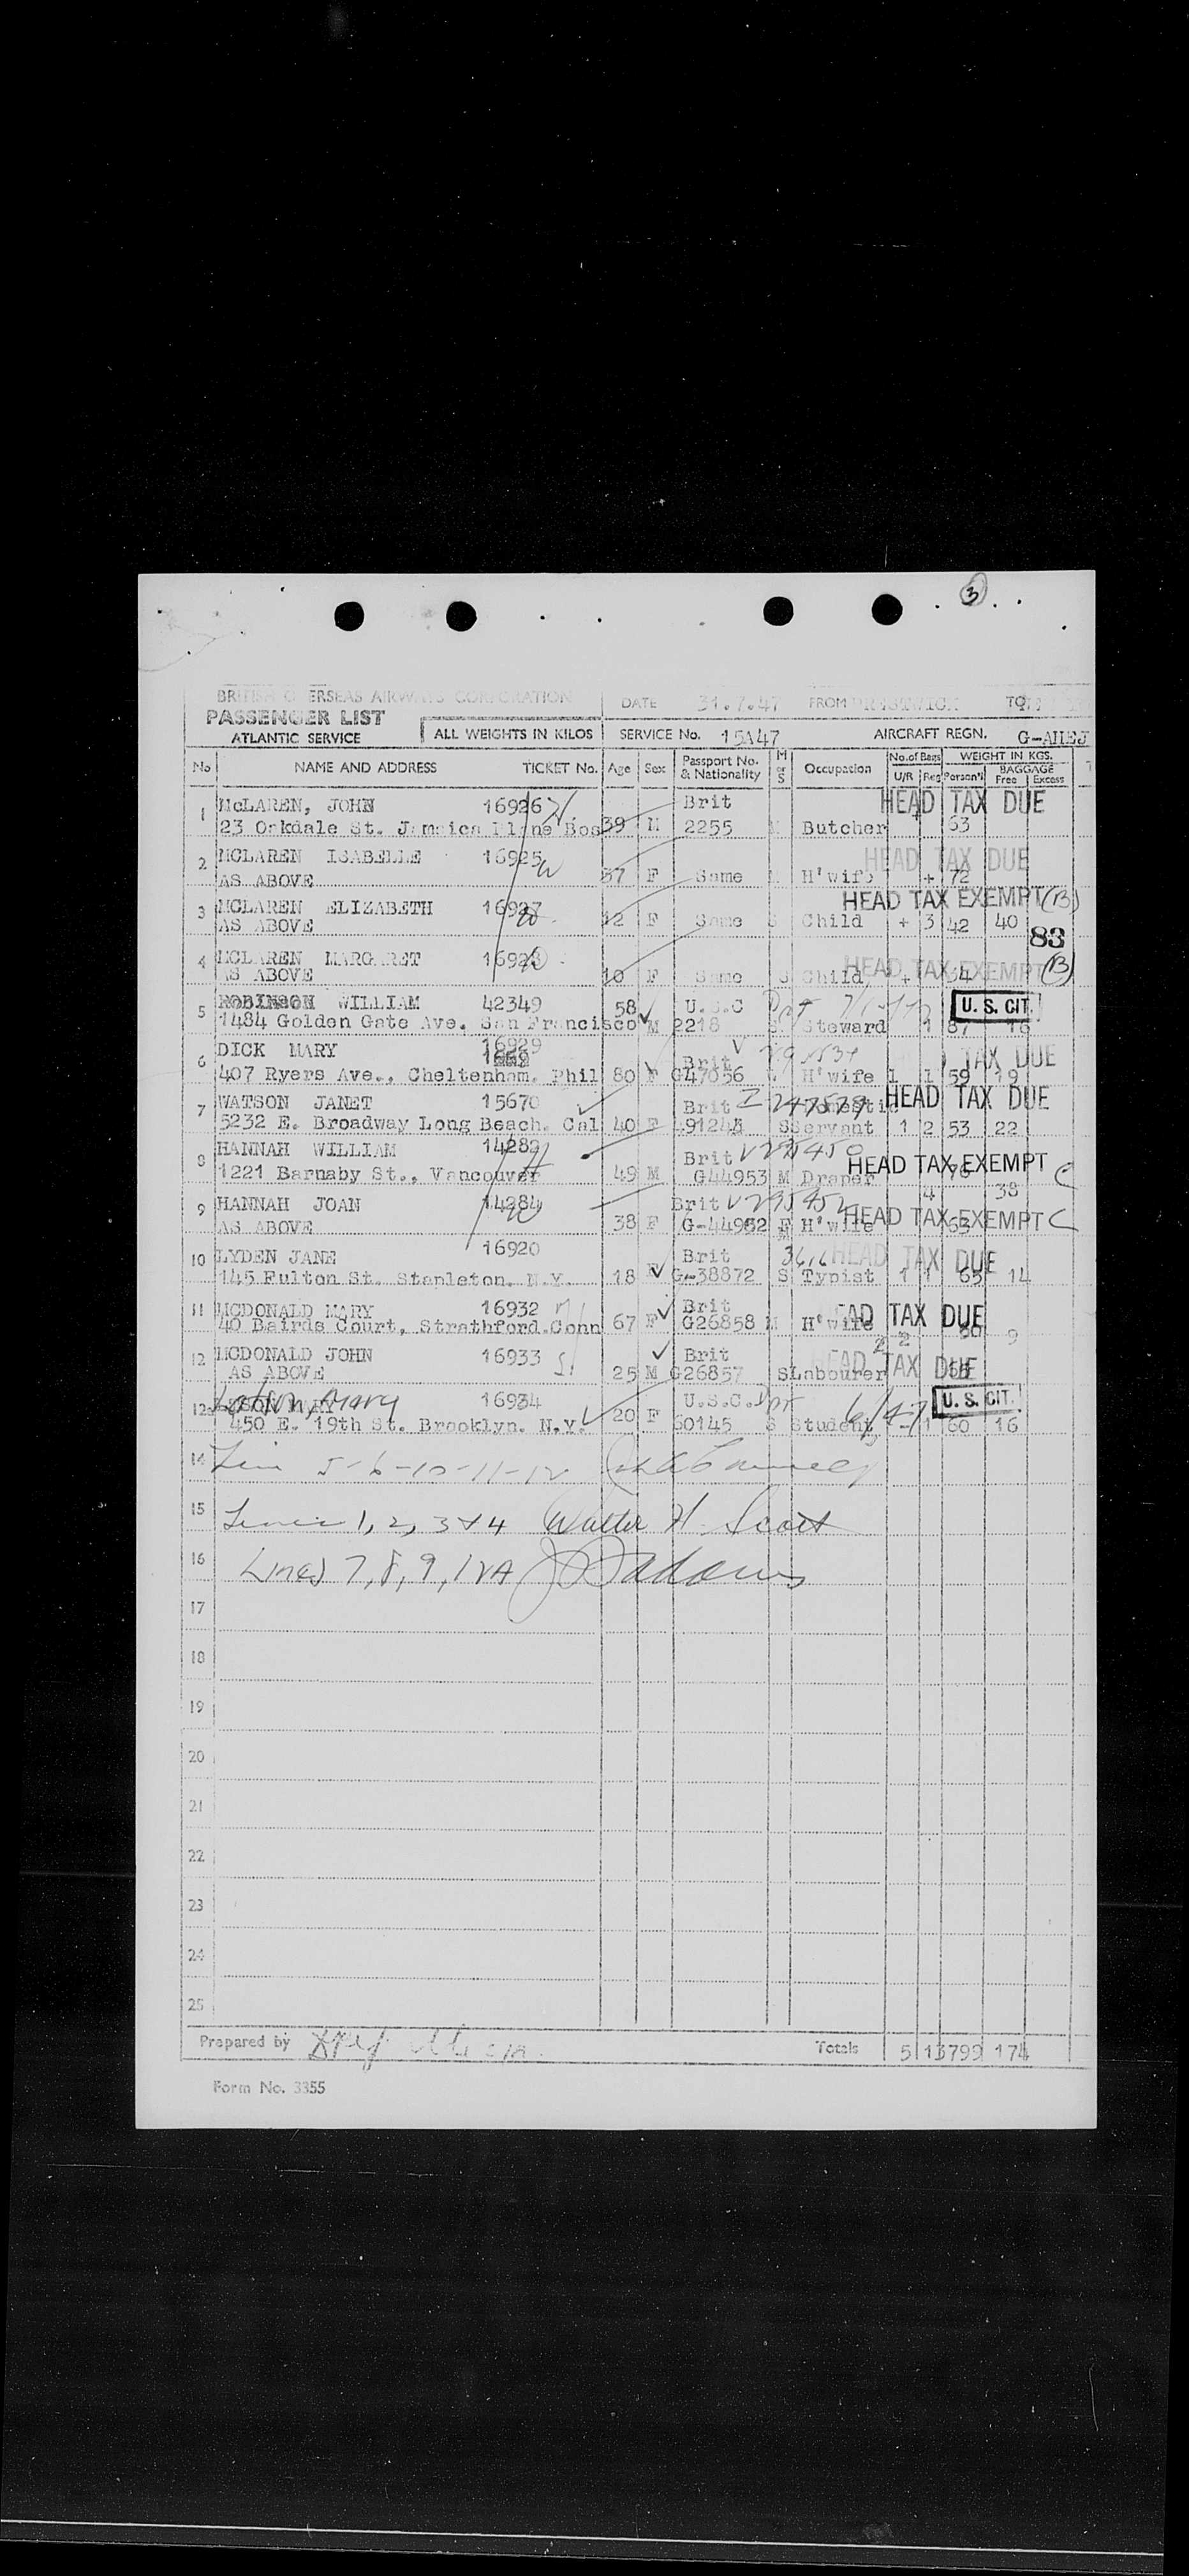 3
BRITISH OVERSEAS AIRWAYS CORPORATION DATE 31.7.47 FROM PRESTWICK TO
PASSENGER LIST
ATLANTIC SERVICE ALL WEIGHTS IN KILOS SERVICE No. 15A47 AIRCRAFT REGN. G-AHEJ
No NAME AND ADDRESS TICKET No. Age Sex Passport No. & Nationality M or S Occupation No. of Bags U/R Reg WEIGHT IN KGS. Person'l BAGGAGE Free Excess
1 McLAREN, JOHN 16926 Brit HEAD TAX DUE
23 Oakdale St. Jamaica Plane Bos 39 M 2255 M Butcher 63
2 MCLAREN ISABELLE 16925 HEAD TAX DUE
AS ABOVE 37 F Same M H'wife + 72
3 MCLAREN ELIZABETH 16927 HEAD TAX EXEMPT (B)
AS ABOVE 12 F Same S Child + 3 42 40
83
4 MCLAREN MARGARET 16928 HEAD TAX EXEMPT (B)
AS ABOVE 10 F Same S Child + 34
5 ROBINSON WILLIAM 42349 58 U.S.C U. S. CIT.
1484 Golden Gate Ave. San Francisco M 2218 Steward 1 87 16
6 DICK MARY 16929 Brit TAX DUE
407 Ryers Ave., Cheltenham. Phil 80 F G47056 H'wife 1 1 59 19
7 WATSON JANET 15670 Brit Domestic HEAD TAX DUE
5232 E. Broadway Long Beach. Cal 40 F 491248 S Servant 1 2 53 22
8 HANNAH WILLIAM 14282 Brit V295450 HEAD TAX EXEMPT C
1221 Barnaby St., Vancouver 49 M G44953 M Draper 76
4 38
9 HANNAH JOAN 14284 Brit V295952 HEAD TAX EXEMPT C
AS ABOVE 38 F G-44952 H'wife 63
10 LYDEN JANE 16920 Brit HEAD TAX DUE
145 Fulton St. Stapleton. N.Y. 18 F G-38872 S Typist 1 1 65 14
11 MCDONALD MARY 16932 Brit HEAD TAX DUE
40 Bairds Court, Strathford.Conn 67 F G26858 M H'wife 2 2 9
12 MCDONALD JOHN 16933 Brit HEAD TAX DUE
AS ABOVE 25 M G26857 S Labourer
12a Mary 16934 U.S.C. U. S. CIT.
450 E. 19th St. Brooklyn. N.Y. 20 F 60145 S Student - 1 60 16
14 Line 5-6-10-11-12
15 Lines 1, 2, 3+4 Walter H. Scott
16 Lines 7, 8, 9, 12A Adams
17
18
19
20
21
22
23
24
25
Prepared by Totals 5 13 799 174
Form No. 3355